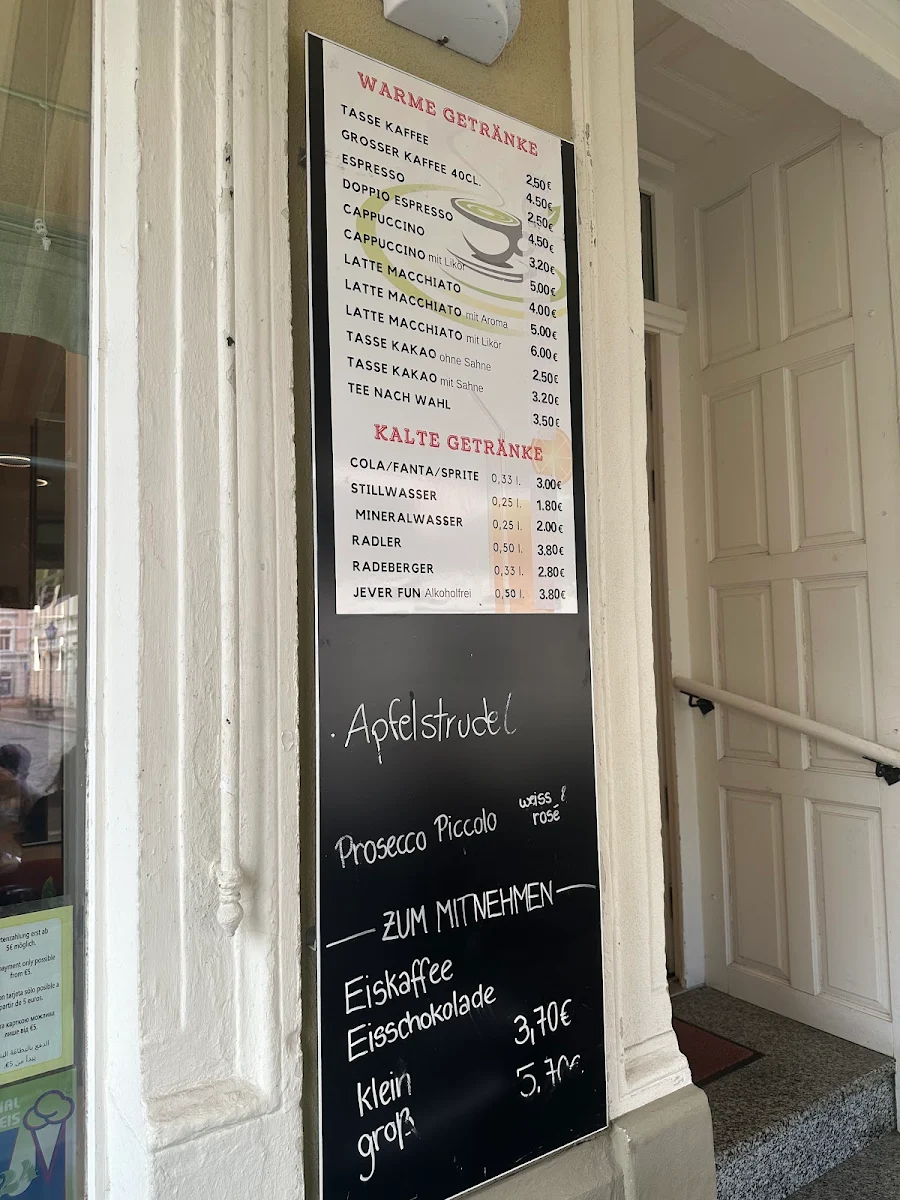 WARME GETRÄNKE
TASSE KAFFEE 2,50€
GROSSER KAFFEE 40CL. 4.50€
ESPRESSO 2,50€
DOPPIO ESPRESSO 4.50€
CAPPUCCINO 3,20€
CAPPUCCINO mit Likör 5,00€
LATTE MACCHIATO 4.00€
LATTE MACCHIATO mit Aroma 5.00€
LATTE MACCHIATO mit Likör 6.00€
TASSE KAKAO ohne Sahne 2.50€
TASSE KAKAO mit Sahne 3.20€
TEE NACH WAHL 3,50€
KALTE GETRÄNKE
COLA/FANTA/SPRITE 0,33 l. 3.00€
STILLWASSER 0,25 l. 1.80€
MINERALWASSER 0,25 l. 2.00€
RADLER 0,50 l. 3.80€
RADEBERGER 0,33 l. 2.80€
JEVER FUN Alkoholfrei 0,50 l. 3.80€
· Apfelstrudel
Prosecco Piccolo weiss &
rosé
ZUM MITNEHMEN
Eiskaffee
Eisschokolade
klein 3,70€
groß 5,70€
tenzahlung erst ab
5€ möglich.
payment only possible
from €5.
on tarjeta sólo posible a
partir de 5 euros.
а карткою можлива
лише від €5.